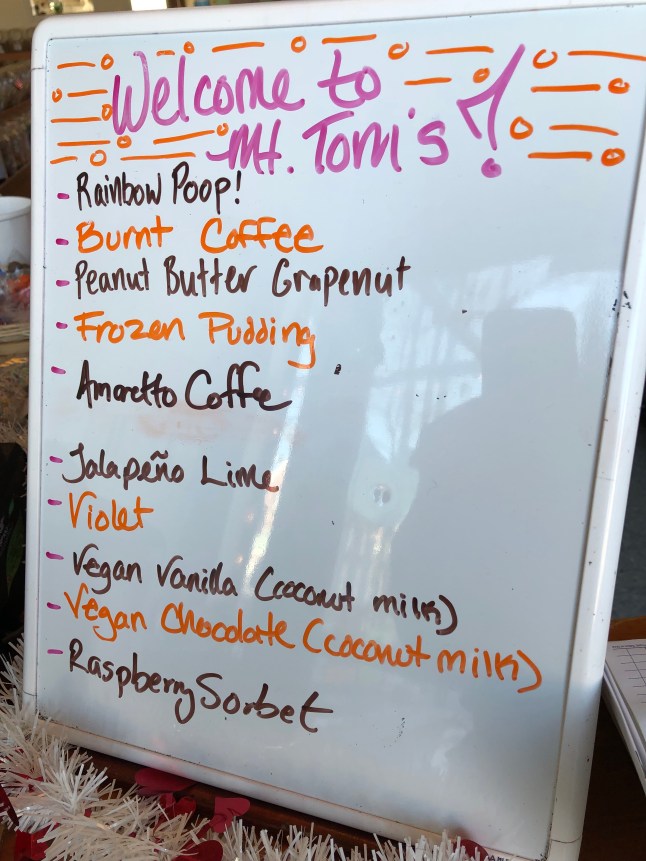 Welcome to
Mt. Tom's!
- Rainbow Poop!
- Burnt Coffee
- Peanut Butter Grapenut
- Frozen Pudding
- Amaretto Coffee
- Jalapeño Lime
- Violet
- Vegan Vanilla (coconut milk)
- Vegan Chocolate (coconut milk)
- Raspberry Sorbet